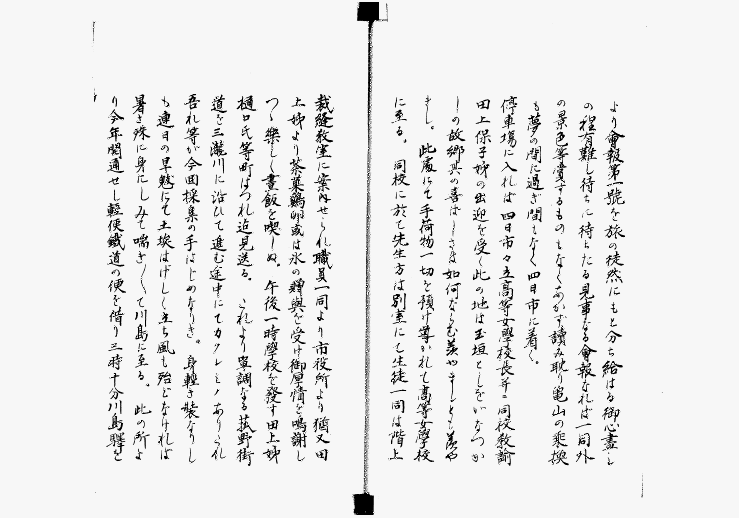 より會報第一號を旅の徒然にもと分ち給はる御心盡し
の程有難し待ちに待ちたる見事なる會報なれば一同外
の景色等賞するものもなくあかず讀み耽り亀山の乘換
も夢の間に過ぎ間もなく四日市に着く。
停車場に入れば四日市々立高等女學校長并に同校敎諭
田上保子姉の出迎を受く此の地は玉垣としをいなつか
しの故郷其の喜ばしさは如何ならむ羨やましとも羨や
まし。此處にて手荷物一切を預け導かれて高等女學校
に至る。同校に於て先生方は別室にて生徒一同は階上
裁縫敎室に案内せられ職員一同より市役所より猶又田
上姉より茶菓鷄卵或は氷の贈與を受け御厚情を鳴謝し
つゝ樂しく晝飯を喫しぬ。午後一時學校を發す田上姉
樋口氏等町はづれ迄見送る。これより單調なる菰野街
道を三瀧川に沿ひて進む途中にてカクレミノありこれ
吾れ等が今回採集の手はじめなりき。身輕き裝なりし
も連日の旱魃にて土埃はげしく立ち風も殆どなければ
暑さ殊に身にしみて喘ぎ〳〵て川島に至る。此の所よ
り今年開通せし輕便鐵道の便を借り三時十分川島驛を